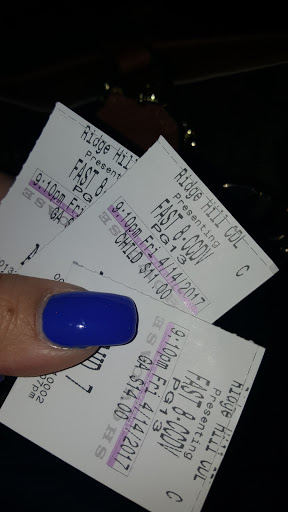 Ridge Hill
Presenting
FAST 8-
PG
9:10pm Fri
GA
Ridge Hill CDL
C
Presenting
FAST 8-CCDV
PG13
9:10pm Fri 4/14/2017
CHILD $11.00
Ridge Hill CDL
C
Presenting
FAST 8-CCDV
PG13
9:10pm Fri 4/14/2017
GA $14.00
HS
7
0002
7pm